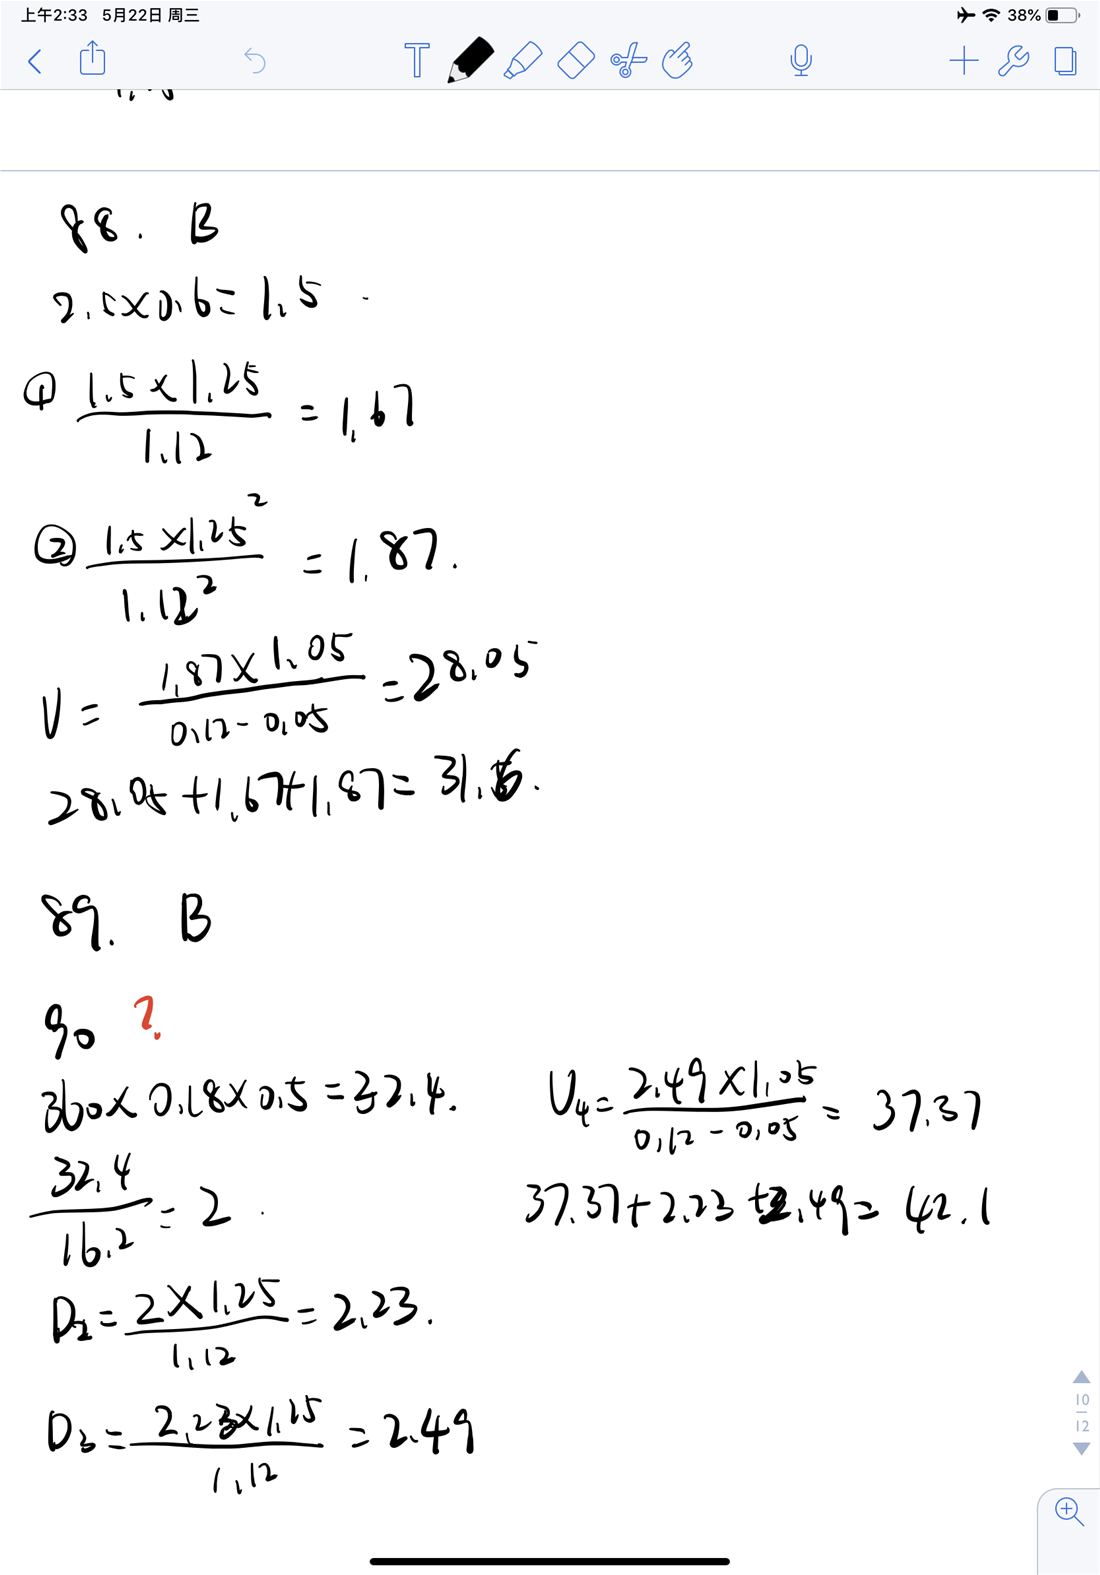 上午2:33 5月22日 周三
38%
T
88. B
2.5×0.6=1.5
① 1.5×1.25
1.12
=1.67
② 1.5×1.25²
1.12²
=1.87.
V= 1.87×1.05
0.12-0.05
=28.05
28.05+1.67+1.87=31.6.
89. B
90 ?
360×0.18×0.5=32.4.
32.4
16.2
=2
D₂= 2×1.25
1.12
=2.23.
D₃= 2.23×1.25
1.12
=2.49
V₄= 2.49×1.05
0.12-0.05
= 37.37
37.37+2.23+2.49=42.1
10
12